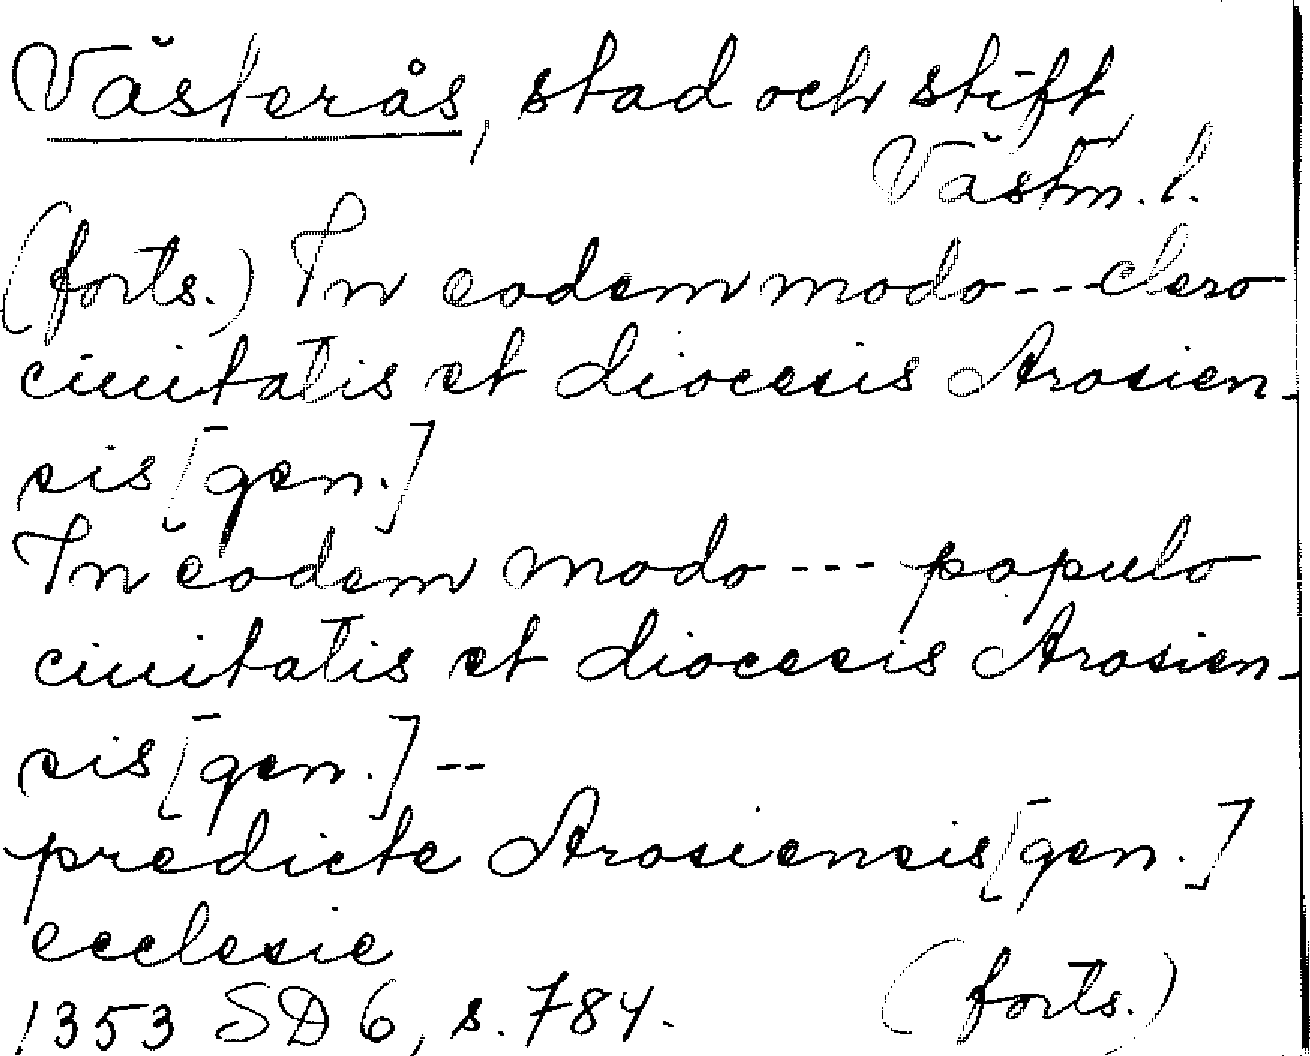 Västerås, stad och stift
Västm. l.
(forts.) In eodem modo --- clero
ciuitatis et diocesis Arosien-
sis [gen.]
In eodem modo --- populo
ciuitatis et diocesis Arosien-
sis [gen.] --
predicte Arosiensis [gen.]
ecclesie
1353 SD 6, s. 784. (forts.)